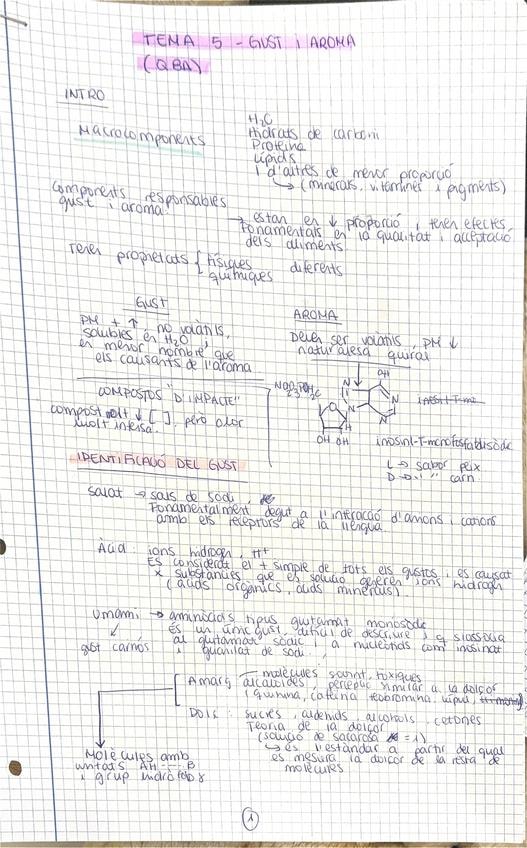 TEMA 5 - GUST I AROMA
(QBA)
INTRO
Macrocomponents
H2O
Hidrats de carboni
Proteïna
Lípids
I d'altres de menor proporció
↳ (minerals, vitamines i pigments)
Components responsables
gust i aroma:
→ estan en ↓ proporció i tenen efectes
fonamentals en la qualitat i acceptació
dels aliments
Tenen propietats { físiques
químiques
diferents
GUST
PM + ↑, no volàtils,
solubles en H2O,
en menor nombre que
els causants de l'aroma
AROMA
Deuen ser volàtils, PM ↓
naturalesa quiral
COMPOSTOS "D'IMPACTE"
compost molt ↓ [ ], però olor
molt intensa.
OH
N
N
N
N
O
OH OH
inosinl-T-monofosfatdisòdic
L → sabor peix
D → " carn
IDENTIFICACIÓ DEL GUST
Salat → sals de sodi,
Fonamentalment degut a l'interacció d'anions i cations
amb els receptors de la llengua.
Àcid: ions hidrogn, H+
És considerat el + simple de tots els gustos i és causat
x substàncies que en solució generen ions hidrogn
(àcids orgànics, àcids minerals).
Umami → aminoàcids tipus glutamat monosòdic
És un únic gust, difícil de descriure i q s'associa
al glutamat sòdic i a nucleòtids com inosinat
i guanilat de sodi.
gust carnós
Amarg
molècules sovint tòxiques
alcaloides, percepció similar a la dolçor
(quinina, cafeïna, teobromina,
Dolç: sucres, aldehids, alcohols, cetones
Teoria de la dolçor
(solució de sacarosa = 1)
↳ és l'estàndar a partir del qual
es mesura la dolçor de la resta de
molècules
Molècules amb
unitats AH --- B
i grup hidròfob γ
1